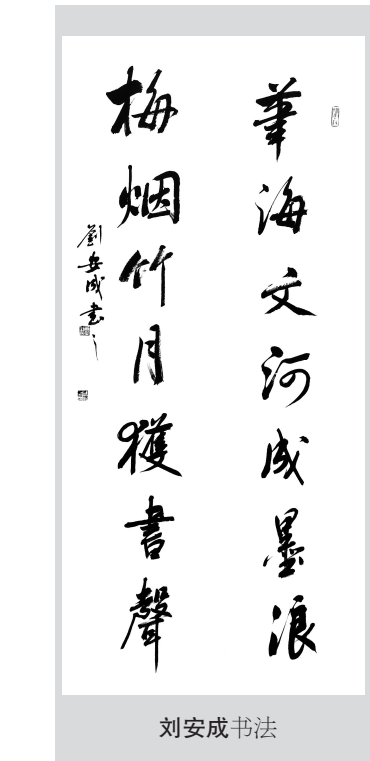 筆海文河成墨浪
梅烟竹月獲書聲
劉安成書之
刘安成书法